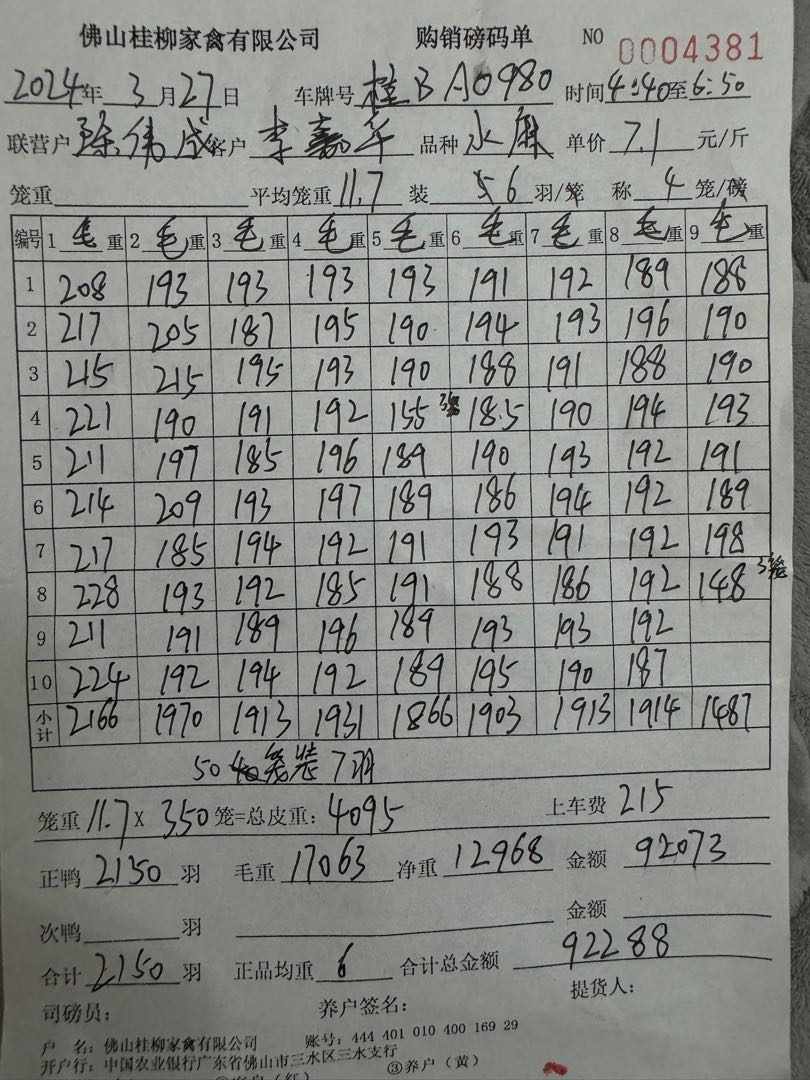 佛山桂柳家禽有限公司 购销磅码单 NO 0004381
2024年 3月27日 车牌号 桂BA0980 时间4:40至6:50
联营户 陈伟成 客户 李嘉华 品种 水麻 单价 7.1 元/斤
笼重 平均笼重 11.7 装 56 羽/笼 称 4 笼/磅
编号 1 毛重 2 毛重 3 毛重 4 毛重 5 毛重 6 毛重 7 毛重 8 毛重 9 毛重
1 208 193 193 193 193 191 192 189 188
2 217 205 187 195 190 194 193 196 190
3 215 215 195 193 190 188 191 188 190
4 221 190 191 192 155 3笼 18.5 190 194 193
5 211 197 185 196 189 190 193 192 191
6 214 209 193 197 189 186 194 192 189
7 217 185 194 192 191 193 191 192 198
8 228 193 192 185 191 188 186 192 148 3笼
9 211 191 189 196 189 193 193 192
10 224 192 194 192 189 195 190 187
小计 2166 1970 1913 1931 1866 1903 1913 1914 1487
50 笼装7羽
笼重 11.7 X 350 笼=总皮重: 4095 上车费 215
正鸭 2150 羽 毛重 17063 净重 12968 金额 92073
次鸭 羽 金额
合计 2150 羽 正品均重 6 合计总金额 92288
司磅员: 养户签名: 提货人:
户 名: 佛山桂柳家禽有限公司 账号: 444 401 010 400 169 29
开户行: 中国农业银行广东省佛山市三水区三水支行
③养户(黄)